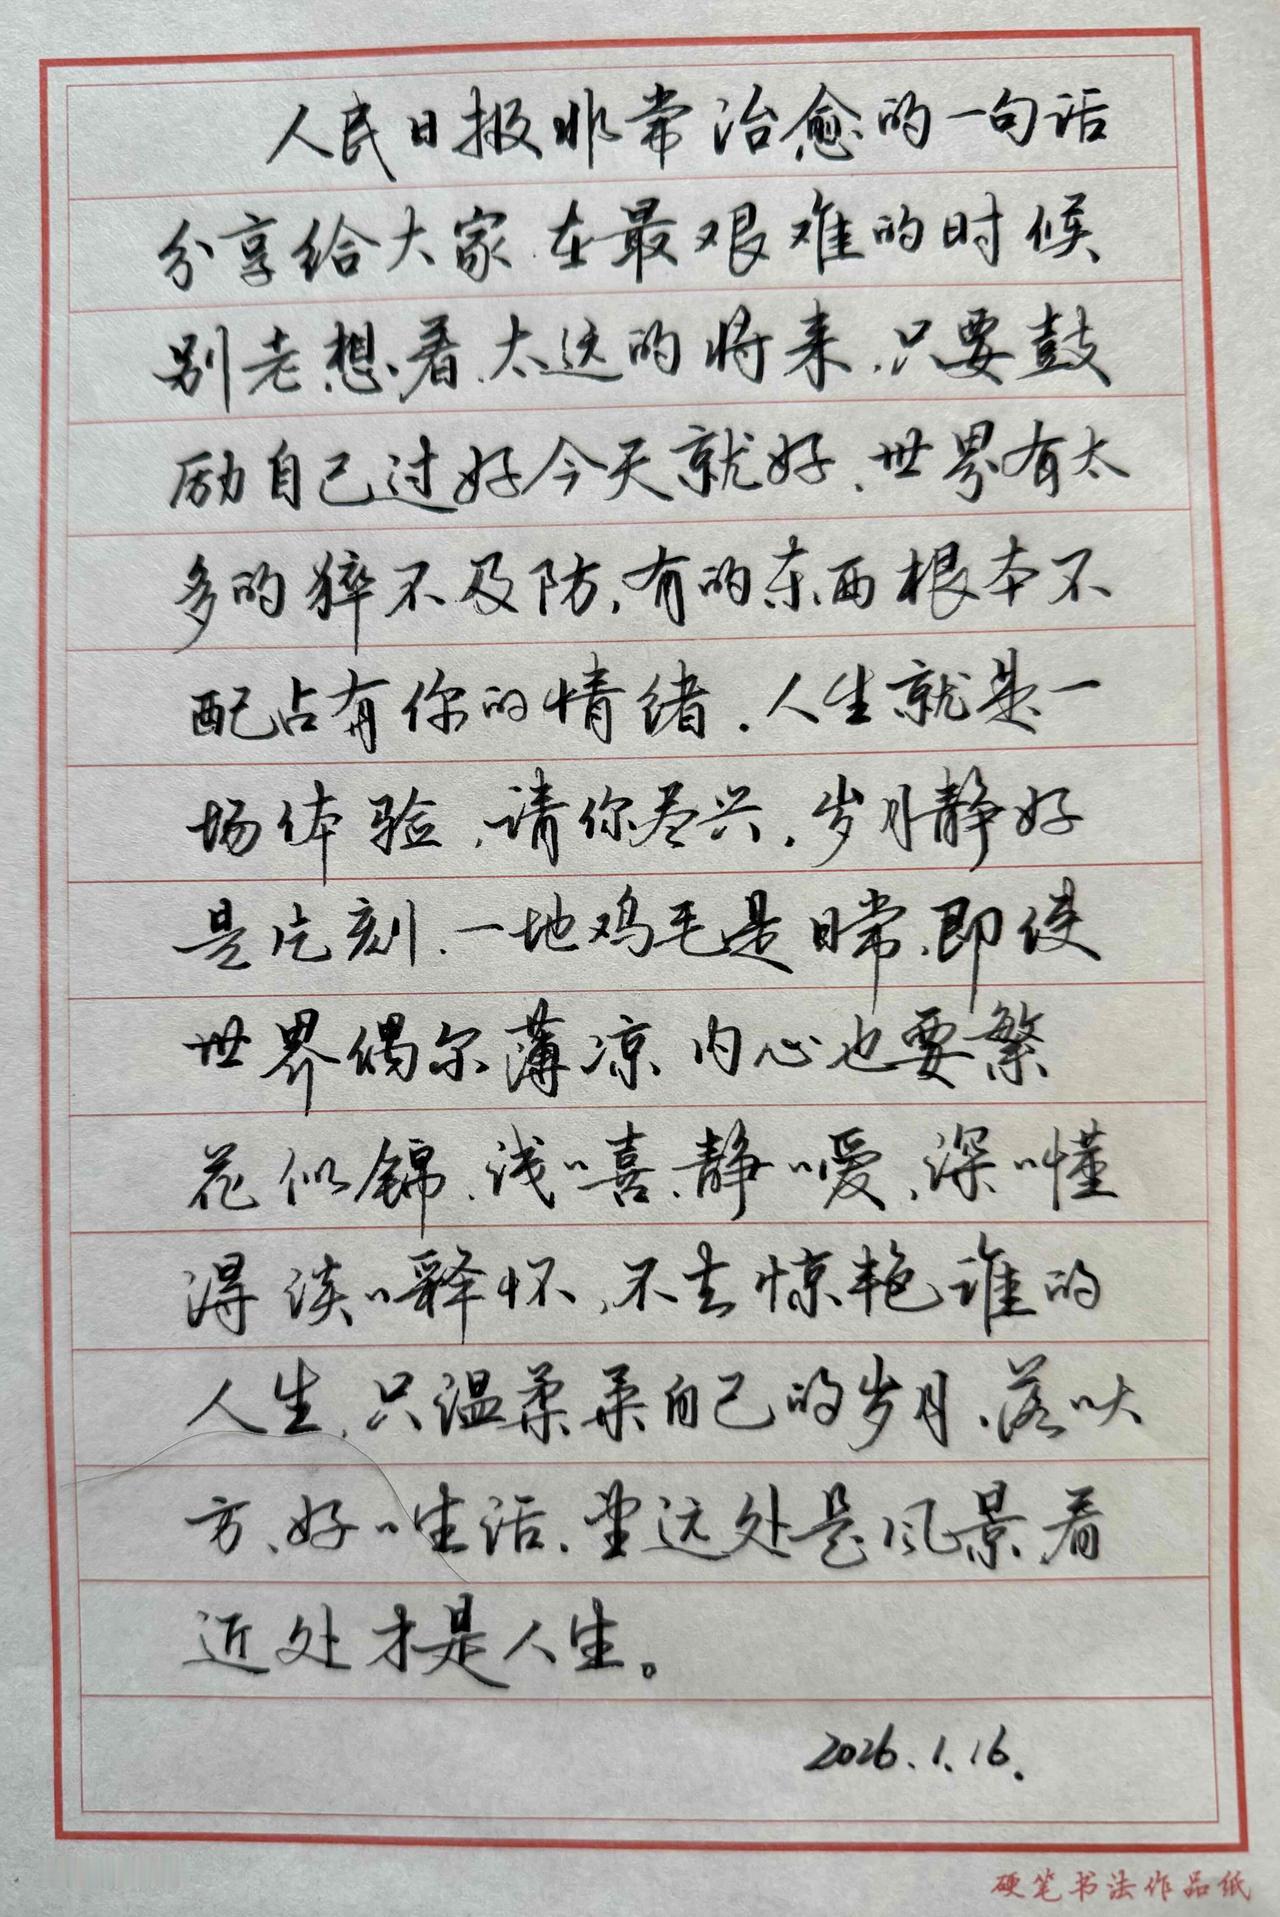 人民日报非常治愈的一句话
分享给大家.在最艰难的时候
别老想着.太远的将来.只要鼓
励自己过好今天就好.世界有太
多的猝不及防.有的东西根本不
配占有你的情绪.人生就是一
场体验.请你尽兴.岁月静好
是片刻.一地鸡毛是日常.即使
世界偶尔薄凉.内心也要繁
花似锦.浅喜.静爱.深懂
得淡释怀.不去惊艳谁的
人生.只温柔柔自己的岁月.落大
方.好生活.望远处是风景.看
近处才是人生。
2026.1.16.
硬笔书法作品纸